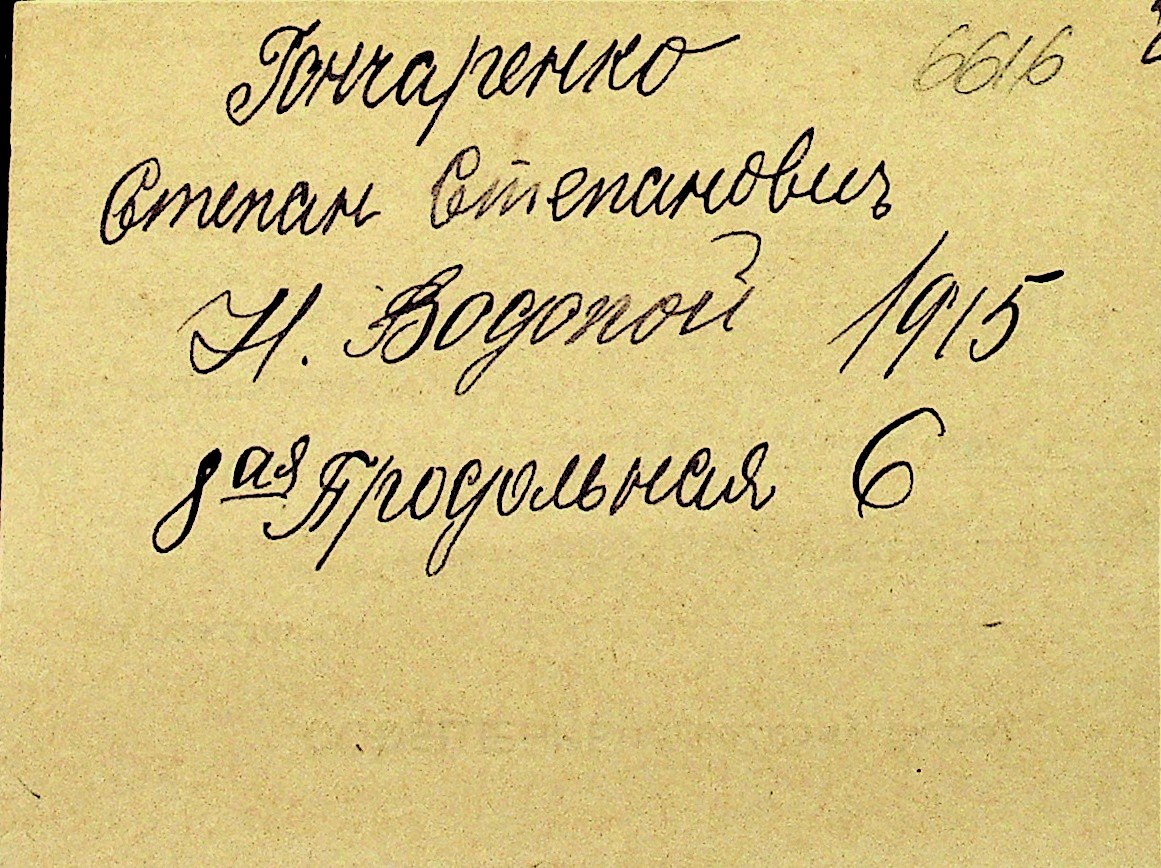 Гончаренко 6616
Степан Степанович
Н. Водопой 1915
8ая Продольная 6